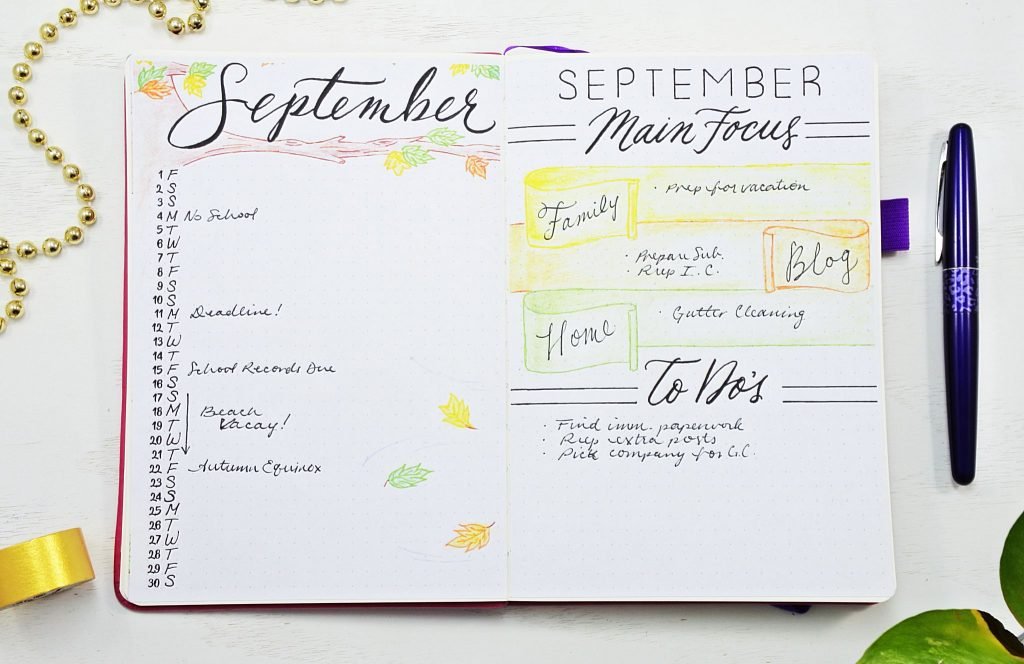 September
1 F
2 S
3 S
4 M No School
5 T
6 W
7 T
8 F
9 S
10 S
11 M Deadline!
12 T
13 W
14 T
15 F School Records Due
16 S
17 S
18 M Beach
19 T Vacay!
20 W
21 T
22 F Autumn Equinox
23 S
24 S
25 M
26 T
27 W
28 T
29 F
30 S
SEPTEMBER
Main Focus
Family
· Prep for vacation
Blog
· Prepare Sub.
· Prep I.C.
Home
· Gutter Cleaning
To Do's
· Find imm. paperwork
· Prep extra posts
· Pick company for G.C.